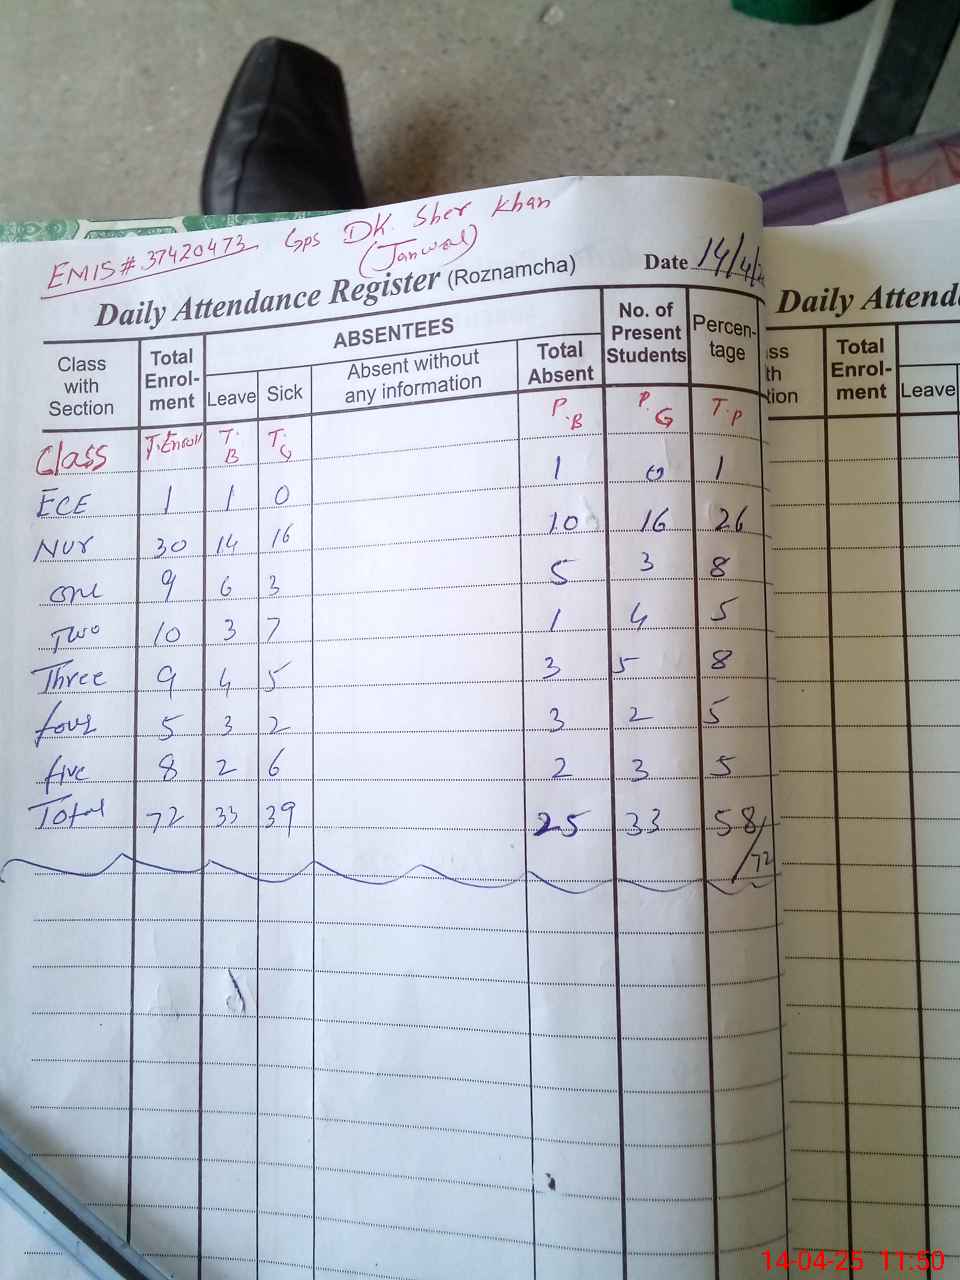 EMIS # 37420473 Gps DK. Sher Khan
(Janwal)
Daily Attendance Register (Roznamcha) Date 14/4/
Class with Section Total Enrol-ment ABSENTEES Leave Sick Absent without any information Total Absent No. of Present Students Percen-tage
Class T.Enroll T.B T.G P.B P.G T.P
ECE 1 1 0 1 0 1
Nur 30 14 16 10 16 26
one 9 6 3 5 3 8
Two 10 3 7 1 4 5
Three 9 4 5 3 5 8
four 5 3 2 3 2 5
five 8 2 6 2 3 5
Total 72 33 39 25 33 58/72
Daily Attend
ss th tion Total Enrol-ment Leave
14-04-25 11:50